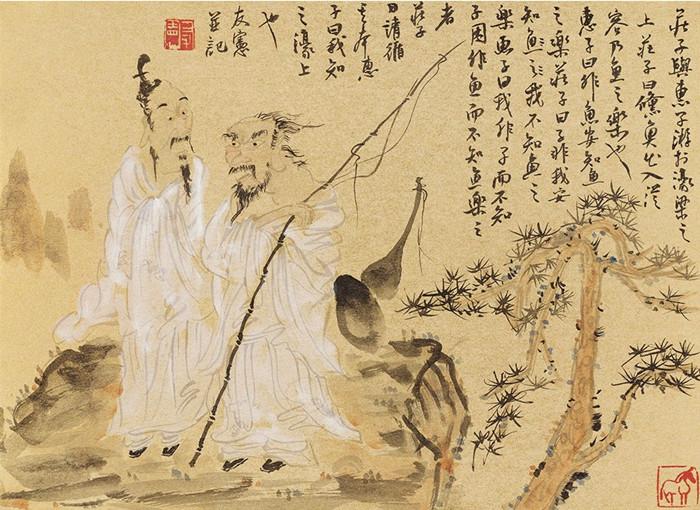 莊子與惠子游於濠梁之
上莊子曰儵魚出入從
容乃魚之樂也
惠子曰非魚安知魚
之樂莊子曰子非我安
知我不知魚之
樂惠子曰我非子而不知
子固非魚而不知魚樂之
者
莊子
曰請循
其本惠
子曰我知
之濠上
也
友憲
並記